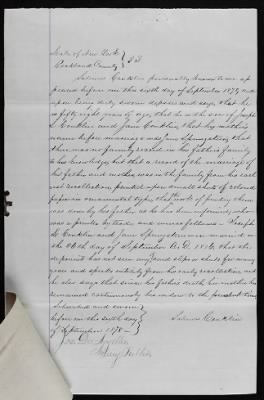 State of New York }
Rockland County } SS
Salmon Conklin personally known to me ap
peared before me this sixth day of September 1878 and
upon being duly sworn deposes and says that he
is fifty eight years of age, that he is the son of Joseph
S. Conklin and Jane Conklin, that his mothers
name before marriage was Jane Springsteen, that
there was no family record in his father's family
to his knowledge but that a record of the marriage of
his father and mother was in the family from his earli
est recollection printed upon small sheets of colored
paper in ornamental type, that work of printing them
was done by his father as he has been informed, who
was a printer by trade and was as follows. Joseph
S. Conklin and Jane Springsteen were married on
the day of September A.D. 1816 that the
deponent has not seen any said slips or sheets for many
years and speaks entirely from his early recollection and
he also says that since his father's death his mother has
remained continuously his widow to the present time
Subscribed and sworn }
before me this sixth day }
of September 1878 }
Salmon Conklin